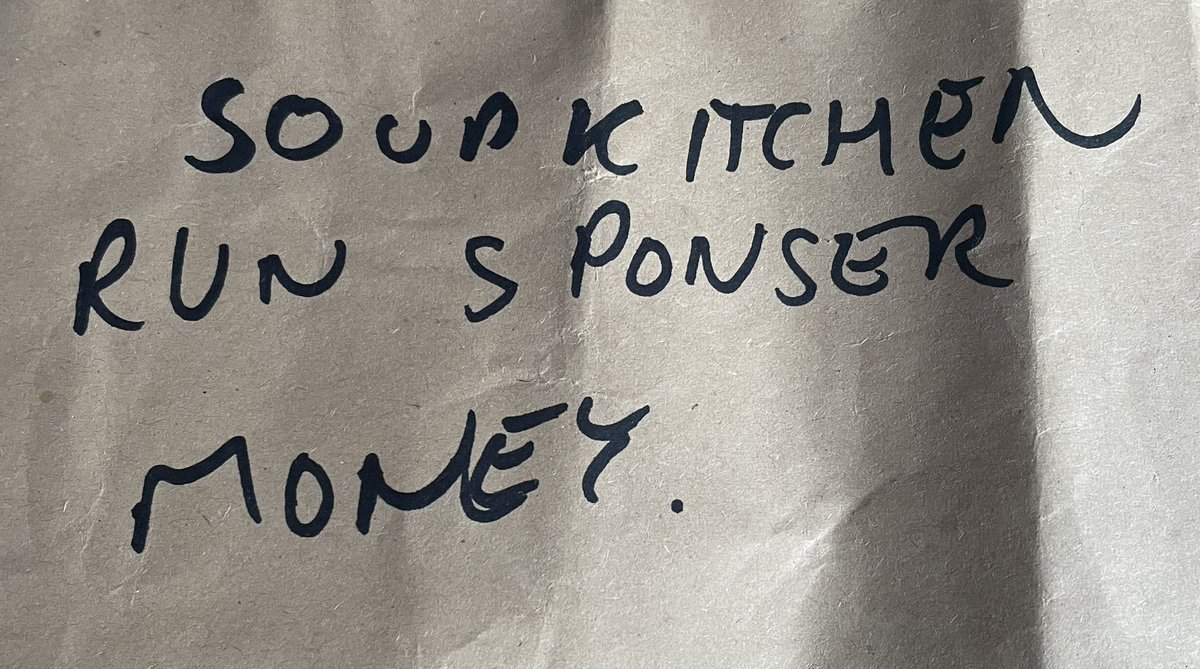 SOUP KITCHEN
RUN SPONSER
MONEY.